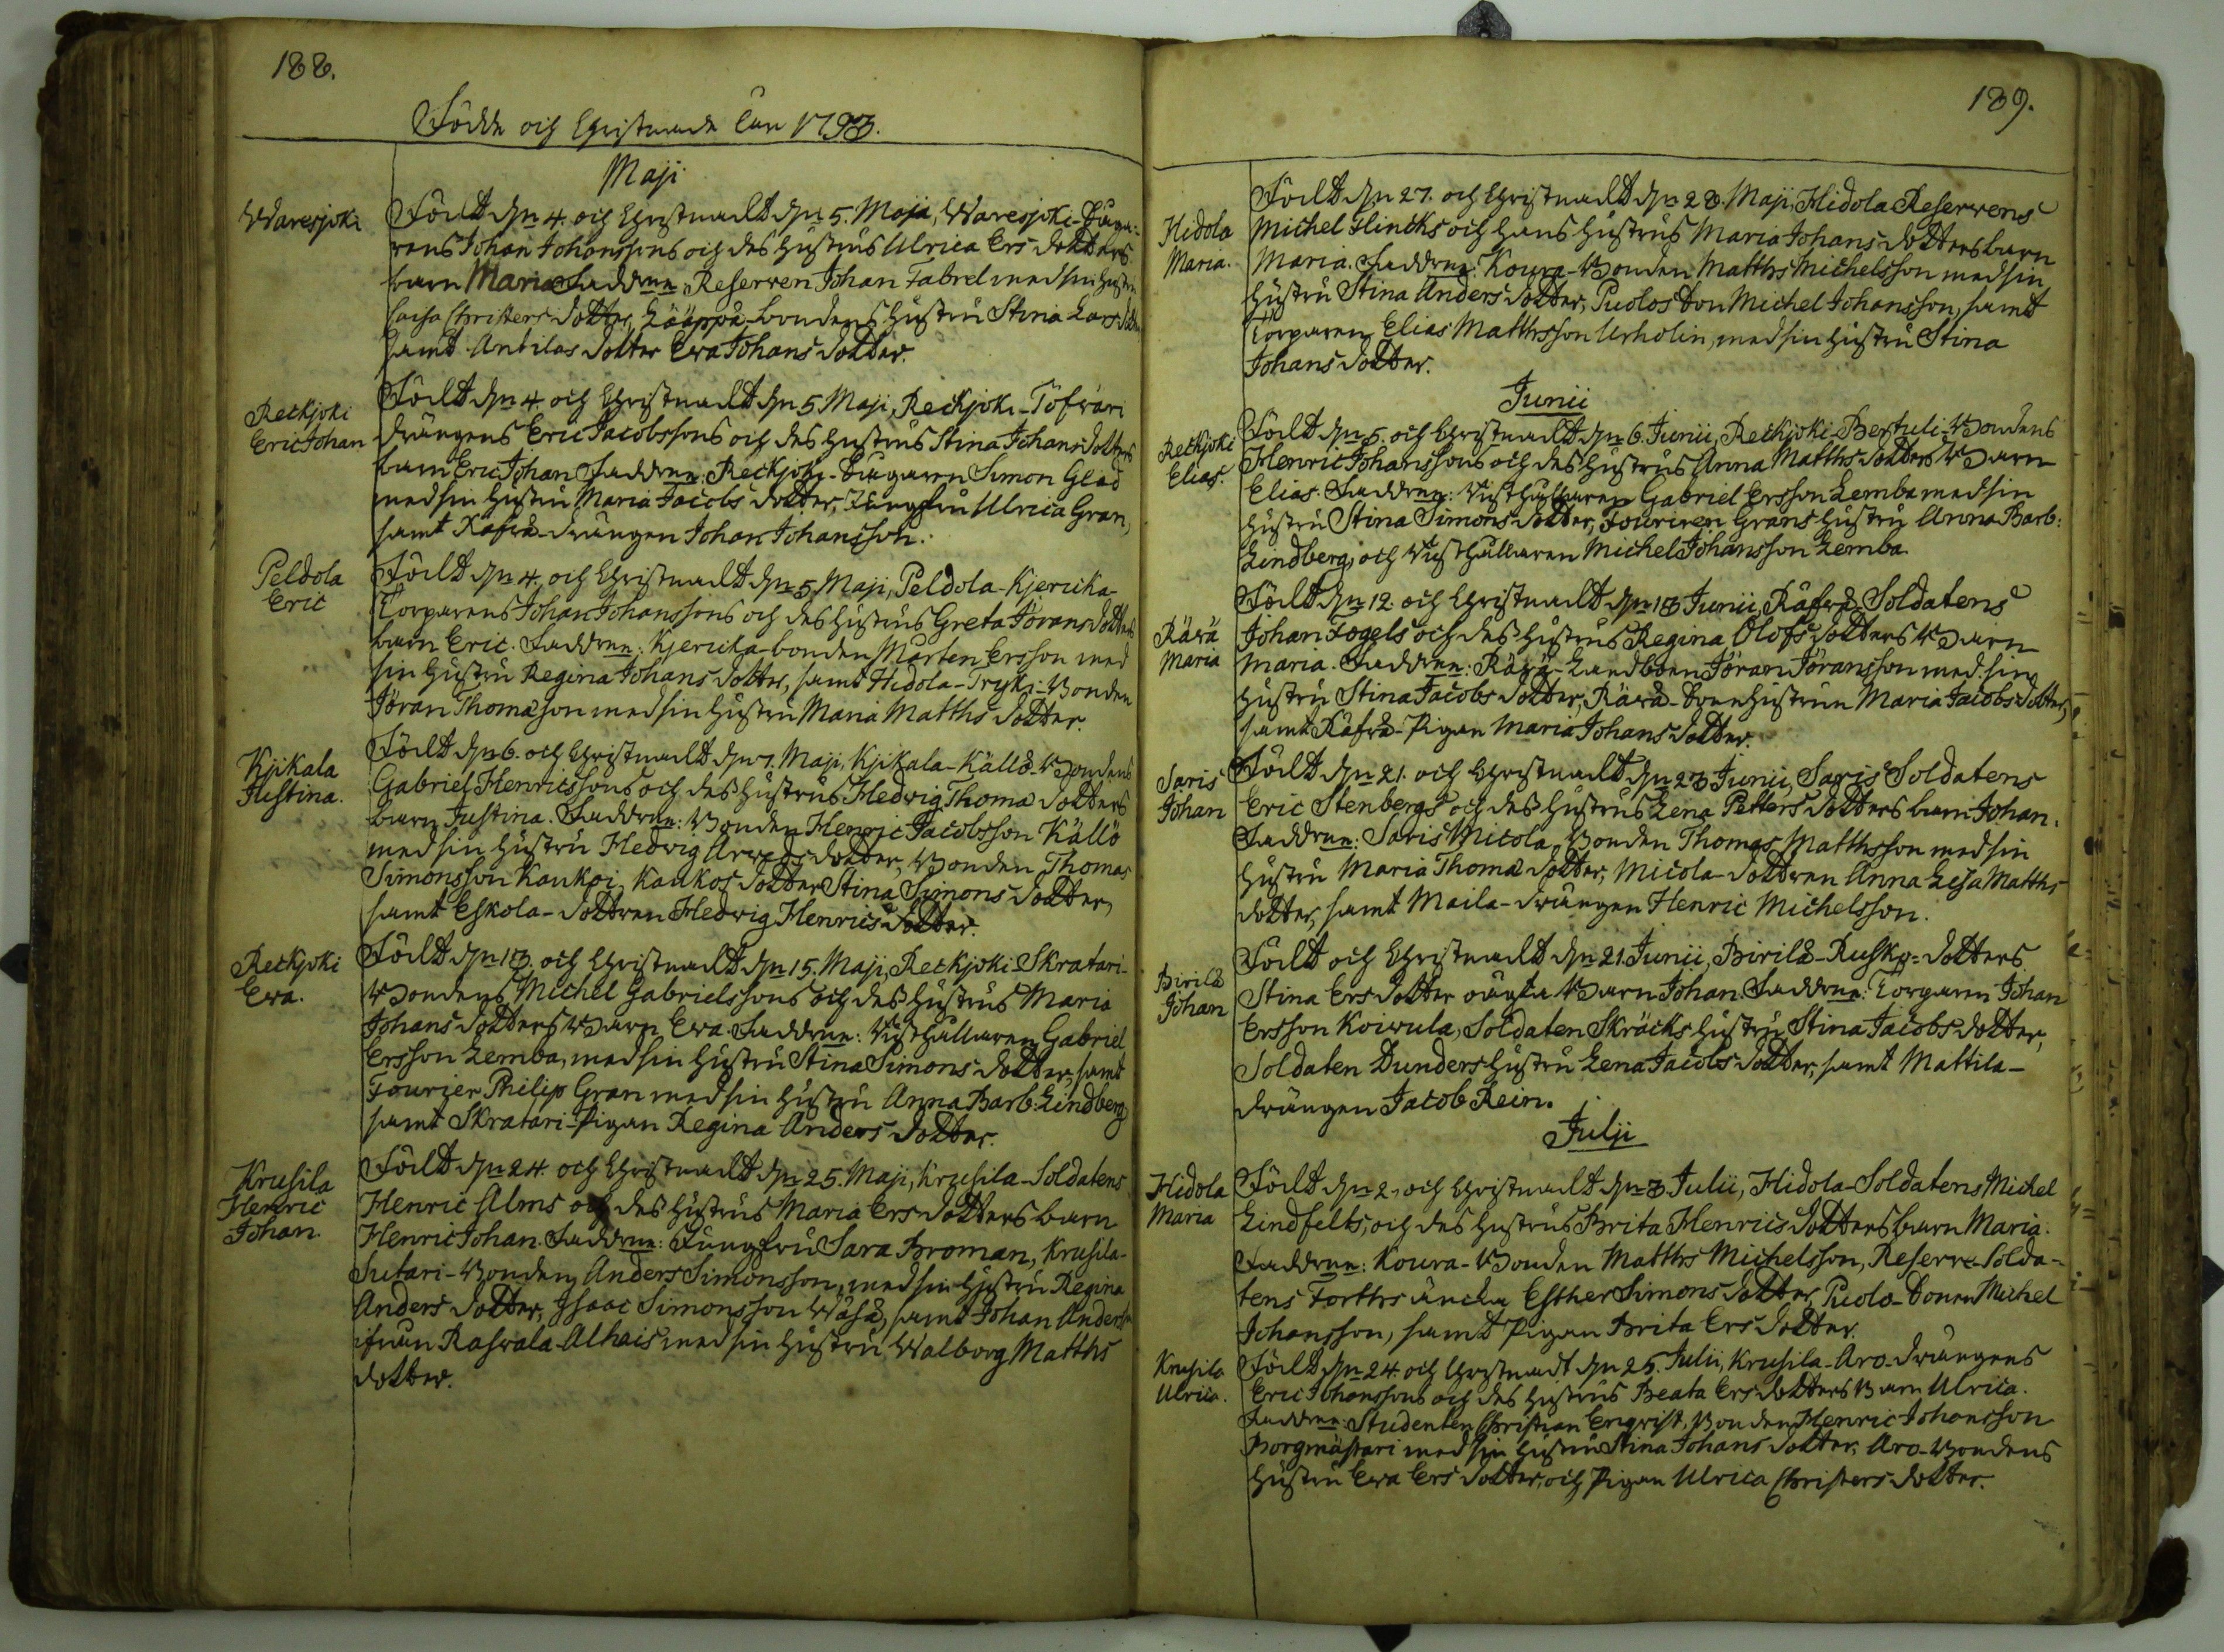 188.
Födde och Christnade åhr 1793.
Maji
Waresjoki
Född den 4. och Christnad den 5. Maji, Waresjoki-
rens Johan Johanssons och des hustrus Ulrica Ers dotters
barn Maria. Faddrar: Reserven Johan Fabrel med sin hustru
Caisa Christers dotter, Lääppä-bondens hustru Stina Lars dotter
samt Anbilas dotter Ewa Johans dotter.
Reckjoki
Eric Johan
Född den 4 och Christnad den 5 Maji, Reckjoki-Töfväri
drängens Eric Jacobssons och des hustrus Stina Johans dotters
barn Eric Johan. Faddrar: Reckjoki- Simon Glad
med sin hustru Maria Jacobs dotter, Jungfru Ulrica Gran,
samt Kafvå-drängen Johan Johansson.
Peldola
Eric
Född den 4. och Christnad den 5 Maji, Peldola-Kjericka-
Torparens Johan Johanssons och des hustrus Greta Jörans dotters
barn Eric. Faddrar: Kjericka-bonden Mårten Ersson med
sin hustru Regina Johans dotter, samt Hidola-Tryki-Bonden
Jöran Thomasson med sin hustru Maria Matths dotter.
Kjikala
Justina.
Född den 6. och Christnad den 7. Maji, Kjikala-Källö-Bondens
Gabriel Henricssons och des hustrus Hedvig Thomæ dotters
barn Justina. Faddrar: Bonden Henric Jacobsson Källö
med sin hustru Hedvig Arveds dotter, Bonden Thomas
Simonsson Kaukoi, Kaukos dotter Stina Simons dotter,
samt Eskola-dottren Hedvig Henrics dotter.
Reckjoki
Ewa.
Född den 13. och Christnad den 15. Maji, Reckjoki-Skratari-
Bondens Michel Gabrielssons och des hustrus Maria
Johans dotters Barn Ewa. Faddrar: Gabriel
Ersson Lemba, med sin hustru Stina Simons dotter, samt
Fourier Philip Gran med sin hustru Anna Barb: Lindberg
samt Skratari-Pigan Regina Anders dotter.
Krusila
Henric
Johan.
Född den 24. och Christnad den 25. Maji, Krusila-Soldatens
Henric Alms och des hustrus Maria Ers dotters barn
Henric Johan. Faddrar: Jungfru Sara Broman, Krusila-
Sutari-Bonden Anders Simonsson med sin hustru Regina
Anders dotter, Isaac Simonsson Wåhå, samt Johan Anderss:
ifrån Raswala-Alhais med sin hustru Walborg Matths
dotter.
189.
Hidola
Maria.
Född den 27. och Christnad den 28. Maji, Hidola Reservens
Michel Hincks och hans hustrus Maria Johans dotters barn
Maria. Faddrar: Koura-Bonden Matths Michelsson med sin
hustru Stina Anders dotter, Puolos Bon Michel Johansson, samt
Torparen Elias Matthsson Urholin, med sin hustru Stina
Johans dotter.
Junii
Reckjoki
Elias.
Född den 5. och Christnad den 6. Junii, Reckjoki-Bertuli-Bondens
Henric Johanssons och des hustrus Anna Matths dotters Barn
Elias. Faddrar: Gabriel Ersson Lemba med sin
hustru Stina Simons dotter, Fourieren Grans hustru Anna Barb:
Lindberg, och Michel Johansson Lemba.
Räwä
Maria
Född den 12. och Christnad den 13 Junii, Räfvä-Soldatens
Johan Fogels och des hustrus Regina Olofs dotters Barn
Maria. Faddrar: Räwä-Landboen Jöran Jöransson med sin
hustru Stina Jacobs dotter, Räwä-boenhustrun Maria Jacobs dotter,
samt Räfvä-Pigan Maria Johans dotter.
Saris
Johan
Född den 21. och Christnad den 23 Junii, Saris Soldatens
Eric Stenbergs och des hustrus Lena Petters dotters barn Johan.
Faddrar: Saris Micola Bonden Thomas Matthsson med sin
hustru Maria Thomæ dotter, Micola-dottren Anna Lesa Matths
dotter, samt Maila-drängen Henric Michelsson.
Birilä
Johan
Född och Christnad den 21. Junii, Birilä-Rusko-dotters
Stina Ers dotter oägta Barn Johan. Faddrar: Torparen Johan
Ersson Koiwula, Soldaten Skräcks hustru Stina Jacobs dotter,
Soldaten Dunders hustru Lena Jacobs dotter, samt Mattila-
drängen Jacob Rein.
Julii
Hidola
Maria
Född den 2. och Christnad den 3 Julii, Hidola-Soldatens Michel
Lindfelts, och des hustrus Brita Henrics dotters barn Maria.
Faddrar: Koura-Bonden Matths Michelsson, Reserve-Solda-
tens Forthrs änka Esther Simons dotter, Puolo-Bonen Michel
Johansson, samt Pigan Brita Ers dotter.
Krusila
Ulrica.
Född den 24. och Christnad den 25. Julii, Krusila-Aro-drängens
Eric Johanssons och des hustrus Beata Ers dotters Barn Ulrica.
Faddrar: Studenten Christian Enqvist, Bonden Henric Johansson
Borgmästari med sin hustru Stina Johans dotter, Aro-Bondens
hustru Ewa Ers dotter, och Pigan Ulrica Christers dotter.